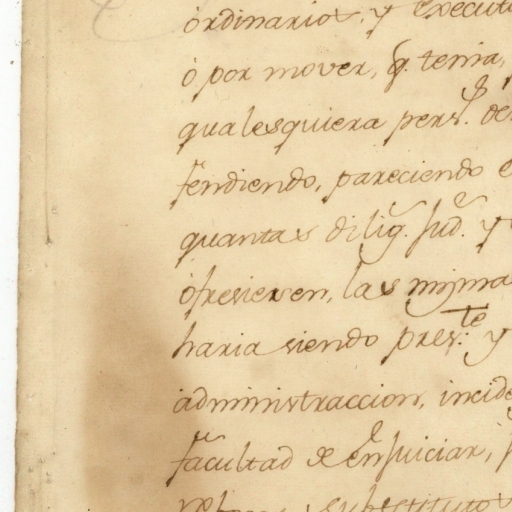 ordinarios, y executi
ò por mover, q. tenia,
qualesquiera pers.s de
fendiendo, pareciendo e
quantas dilig.s Jud.s y
ofreciesen, las mismas
haria siendo pres.te y
administraccion, incide
facultad de enjuiciar, j
substituto